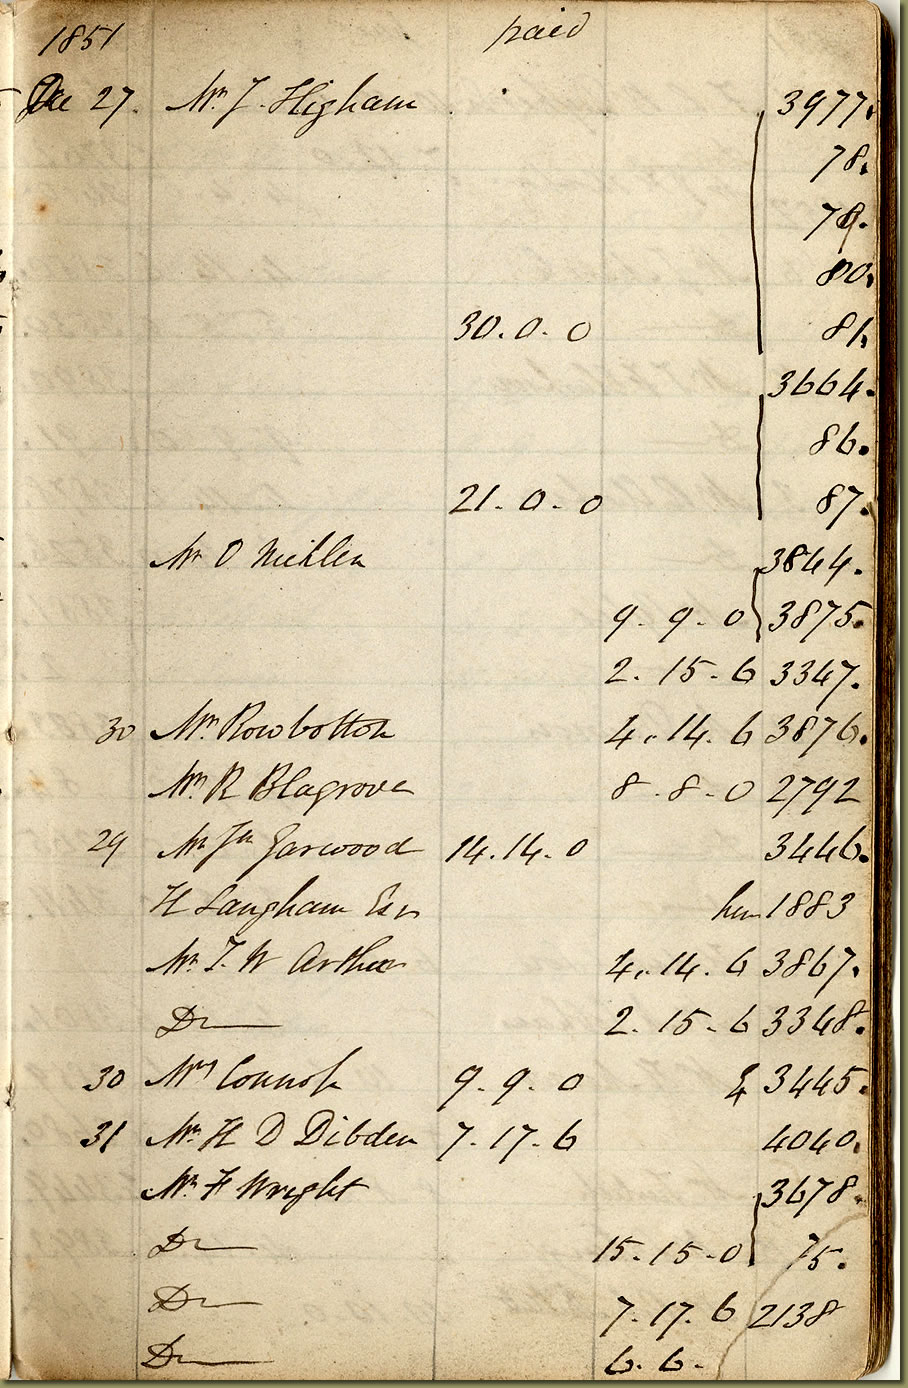 1851 paid
Dec 27. Mr J. Higham 3977.
78.
79.
80.
30.0.0 81.
3664.
86.
21.0.0 87.
Mr O Nicklen 3844.
9.9.0 3875.
2.15.6 3347.
30 Mr Rowbottom 4.14.6 3876.
Mr R Blagrove 8.8.0 2792
29 Mr Jn Garwood 14.14.0 3446.
H Langham Esr 1883
Mr T. W Arthur 4.14.6 3867.
Do 2.15.6 3348.
30 Mrs 9.9.0 3445.
31 Mr H D Dibden 7.17.6 4040.
Mr F Wright 3678.
Do 15.15.0 75.
Do 7.17.6 2138
Do 6.6.